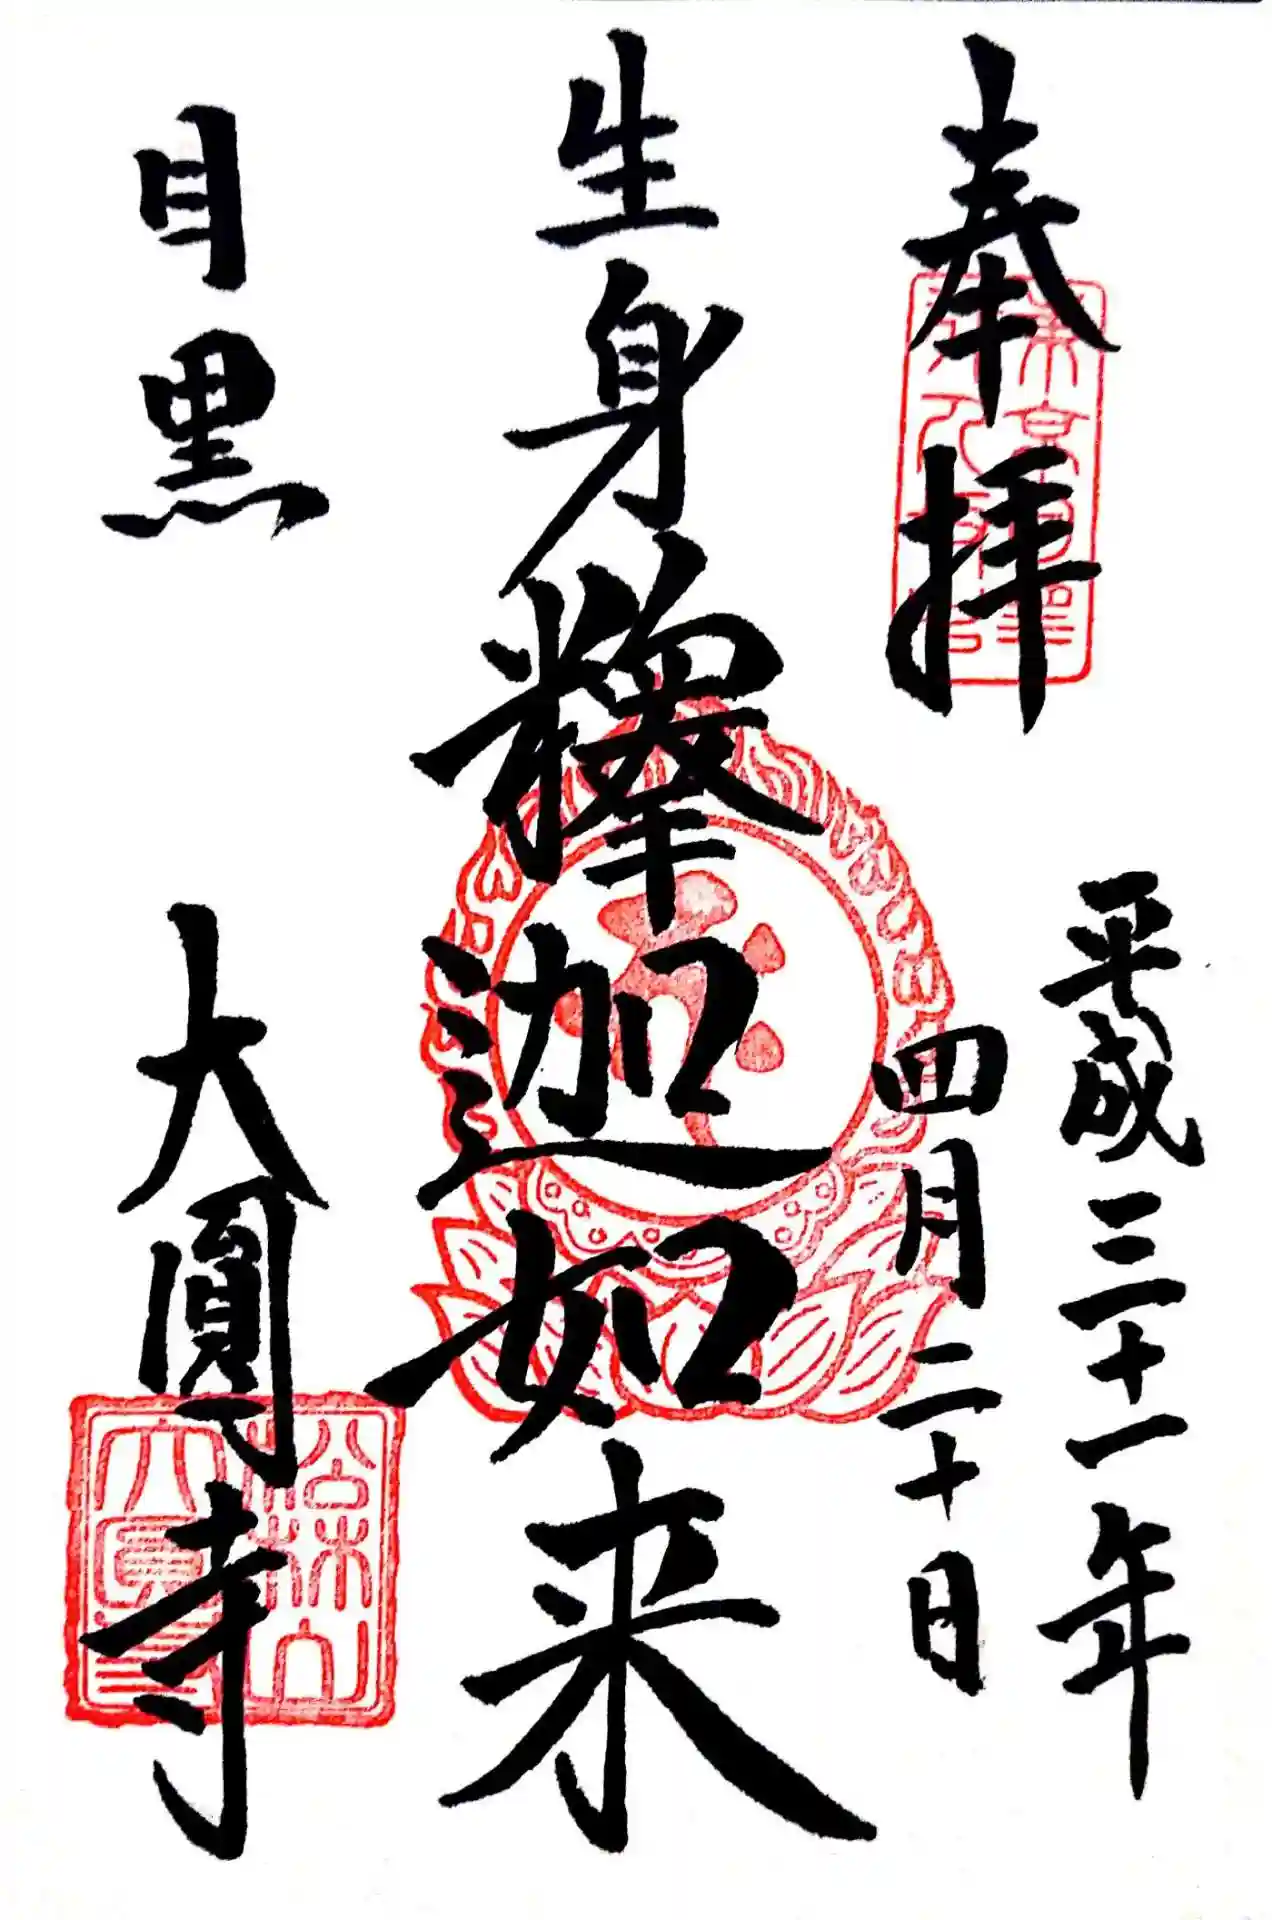 奉拝
平成三十一年
四月二十日
生身釋迦如来
目黒
大圓寺
松林山
大圓寺